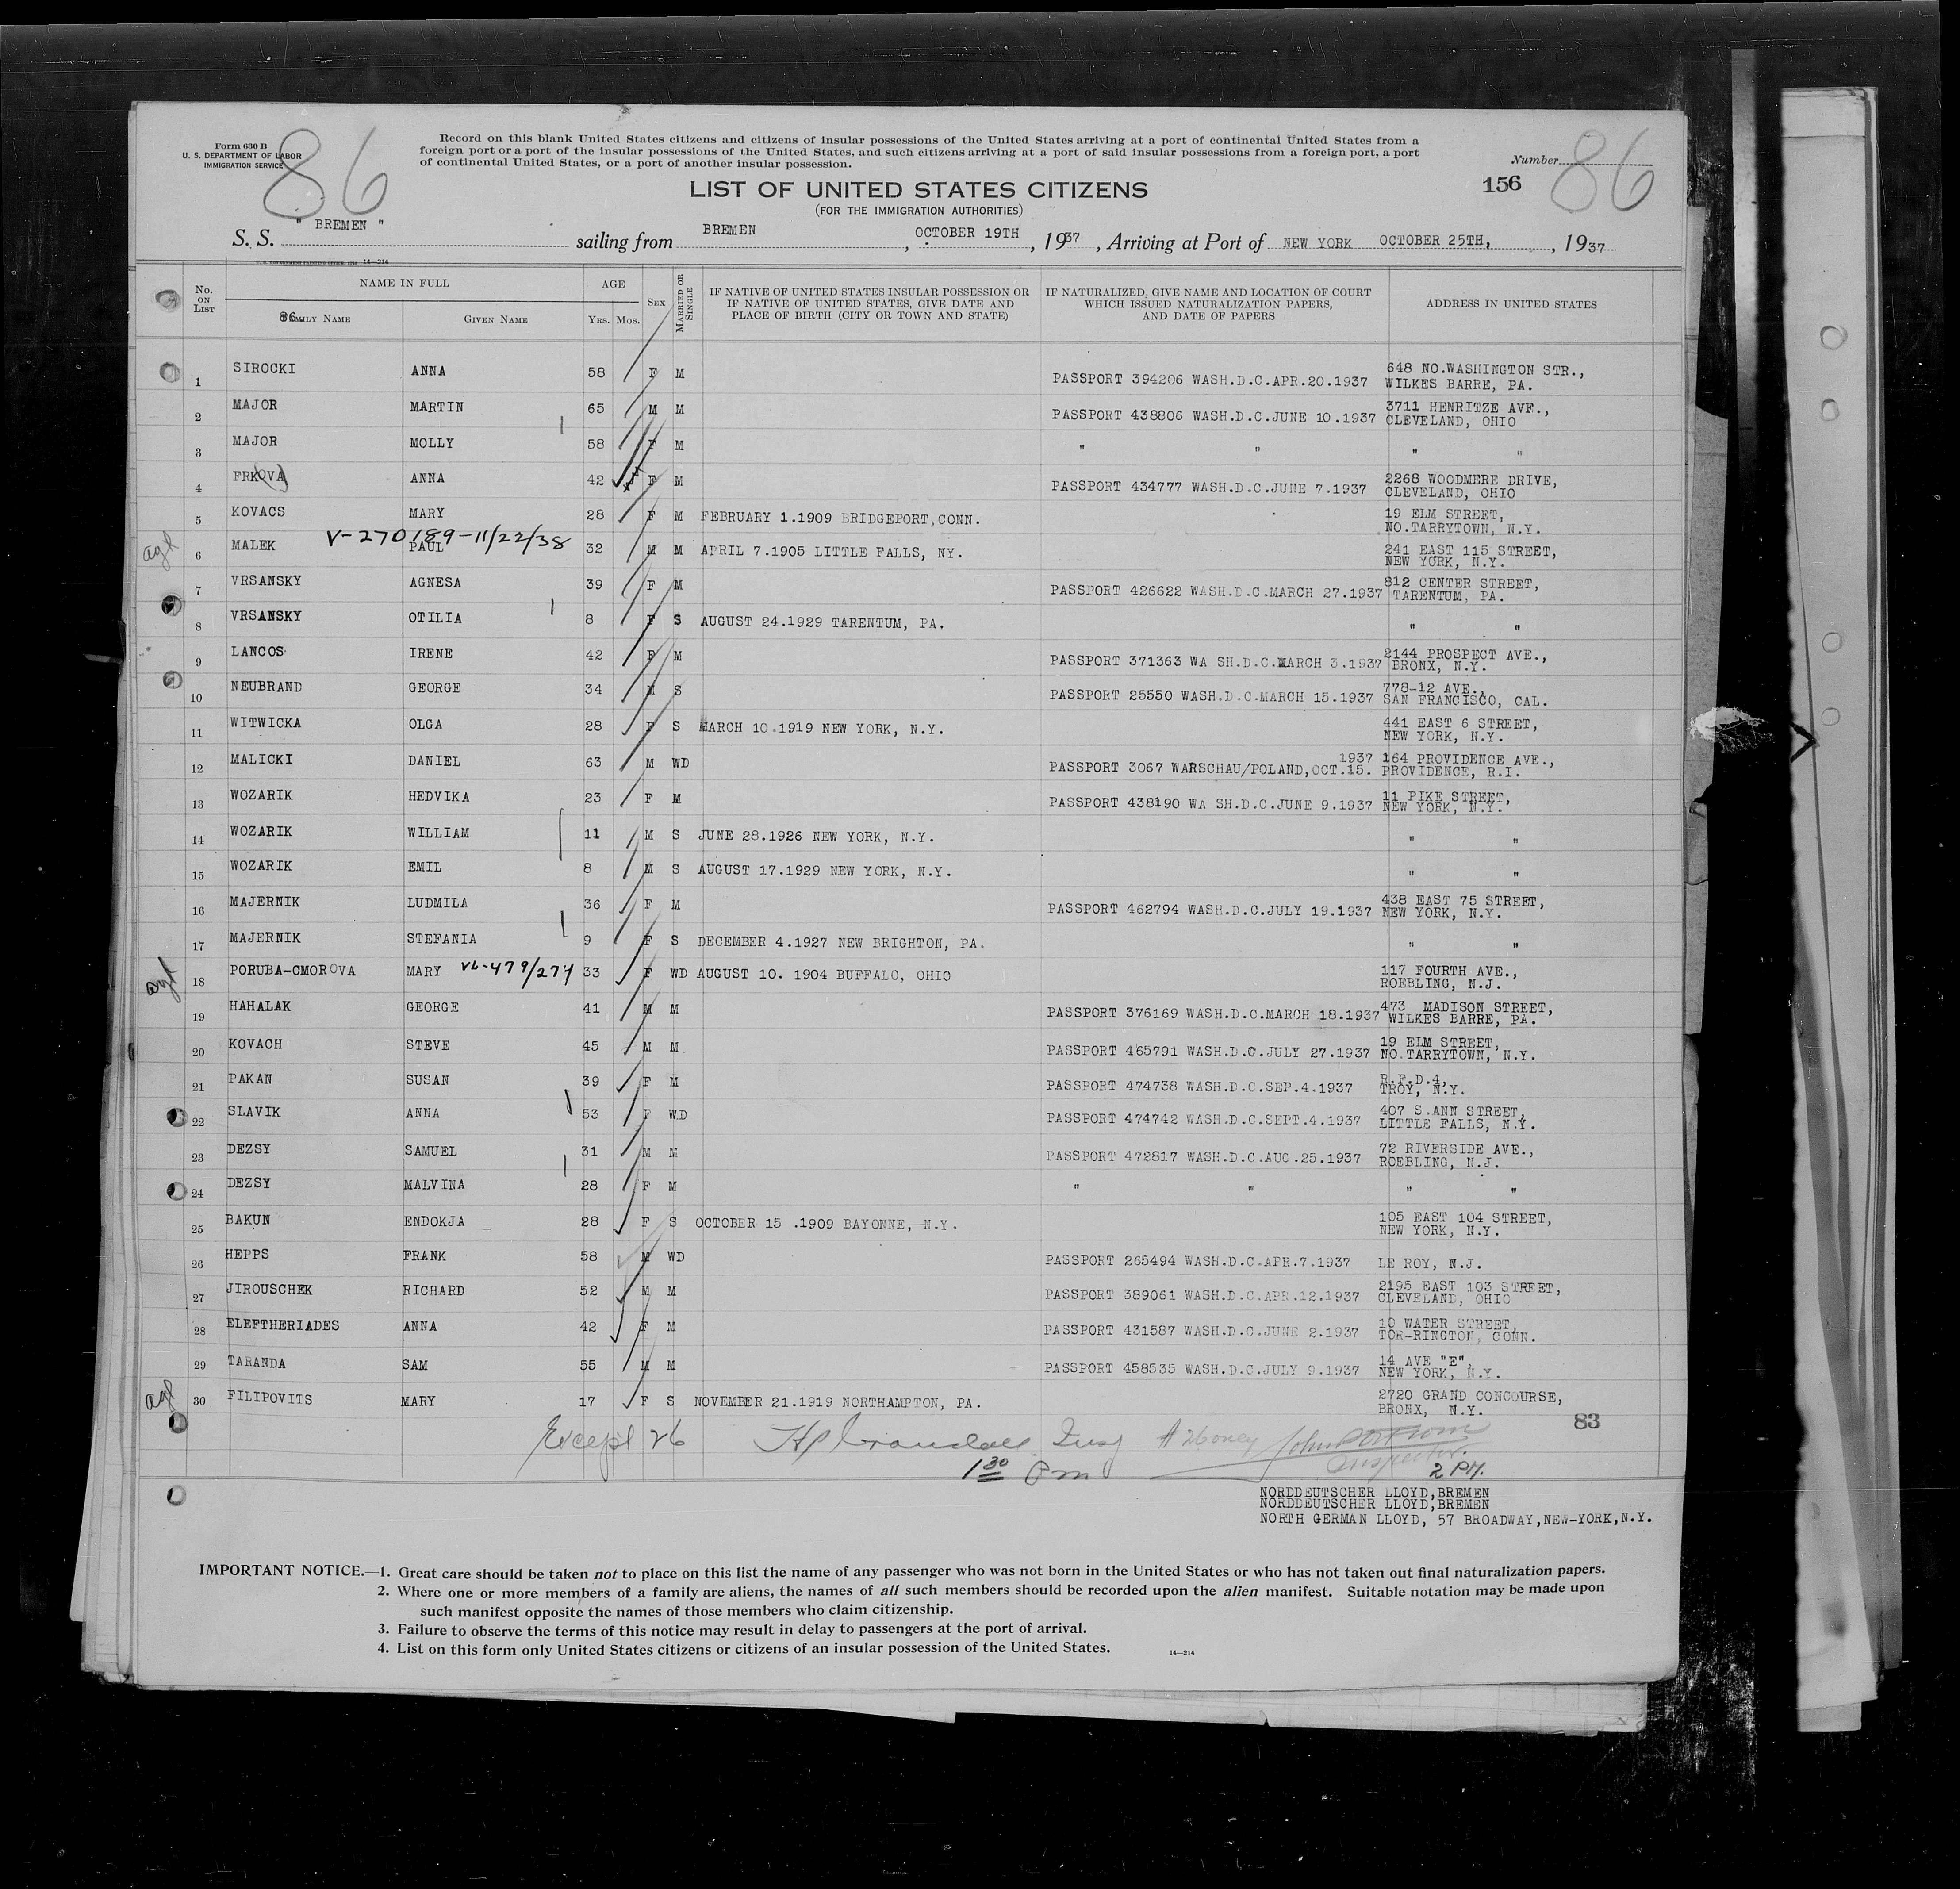 Form 630 B
U. S. DEPARTMENT OF LABOR
IMMIGRATION SERVICE
86
Record on this blank United States citizens and citizens of insular possessions of the United States arriving at a port of continental United States from a
foreign port or a port of the insular possessions of the United States, and such citizens arriving at a port of said insular possessions from a foreign port, a port
of continental United States, or a port of another insular possession.
Number 86
156
LIST OF UNITED STATES CITIZENS
(FOR THE IMMIGRATION AUTHORITIES)
S. S. " BREMEN " sailing from BREMEN , OCTOBER 19TH , 1937 , Arriving at Port of NEW YORK OCTOBER 25TH, , 1937
14—214
No. ON LIST NAME IN FULL AGE SEX MARRIED OR SINGLE IF NATIVE OF UNITED STATES INSULAR POSSESSION OR IF NATIVE OF UNITED STATES, GIVE DATE AND PLACE OF BIRTH (CITY OR TOWN AND STATE) IF NATURALIZED, GIVE NAME AND LOCATION OF COURT WHICH ISSUED NATURALIZATION PAPERS, AND DATE OF PAPERS ADDRESS IN UNITED STATES
86 FAMILY NAME GIVEN NAME YRS. MOS.
1 SIROCKI ANNA 58 F M PASSPORT 394206 WASH.D.C.APR.20.1937 648 NO.WASHINGTON STR., WILKES BARRE, PA.
2 MAJOR MARTIN 65 M M PASSPORT 438806 WASH.D.C.JUNE 10.1937 3711 HENRITZE AVE., CLEVELAND, OHIO
3 MAJOR MOLLY 58 F M " " " "
4 FRKOVA ANNA 42 F M PASSPORT 434777 WASH.D.C.JUNE 7.1937 2268 WOODMERE DRIVE, CLEVELAND, OHIO
5 KOVACS MARY 28 F M FEBRUARY 1.1909 BRIDGEPORT,CONN. 19 ELM STREET, NO.TARRYTOWN, N.Y.
V-270189-11/22/38
6 MALEK PAUL 32 M M APRIL 7.1905 LITTLE FALLS, NY. 241 EAST 115 STREET, NEW YORK, N.Y.
7 VRSANSKY AGNESA 39 F M PASSPORT 426622 WASH.D.C.MARCH 27.1937 812 CENTER STREET, TARENTUM, PA.
8 VRSANSKY OTILIA 8 F S AUGUST 24.1929 TARENTUM, PA. " "
9 LANCOS IRENE 42 F M PASSPORT 371363 WA SH.D.C.MARCH 3.1937 2144 PROSPECT AVE., BRONX, N.Y.
10 NEUBRAND GEORGE 34 M S PASSPORT 25550 WASH.D.C.MARCH 15.1937 778-12 AVE., SAN FRANCISCO, CAL.
11 WITWICKA OLGA 28 F S MARCH 10.1919 NEW YORK, N.Y. 441 EAST 6 STREET, NEW YORK, N.Y.
12 MALICKI DANIEL 63 M WD PASSPORT 3067 WARSCHAU/POLAND,OCT.15. 1937 164 PROVIDENCE AVE., PROVIDENCE, R.I.
13 WOZARIK HEDVIKA 23 F M PASSPORT 438190 WA SH.D.C.JUNE 9.1937 11 PIKE STREET, NEW YORK, N.Y.
14 WOZARIK WILLIAM 11 M S JUNE 28.1926 NEW YORK, N.Y. " "
15 WOZARIK EMIL 8 M S AUGUST 17.1929 NEW YORK, N.Y. " "
16 MAJERNIK LUDMILA 36 F M PASSPORT 462794 WASH.D.C.JULY 19.1937 438 EAST 75 STREET, NEW YORK, N.Y.
17 MAJERNIK STEFANIA 9 F S DECEMBER 4.1927 NEW BRIGHTON, PA. " "
18 PORUBA-CMOROVA MARY VL-479/274 33 F WD AUGUST 10. 1904 BUFFALO, OHIO 117 FOURTH AVE., ROEBLING, N.J.
19 HAHALAK GEORGE 41 M M PASSPORT 376169 WASH.D.C.MARCH 18.1937 473 MADISON STREET, WILKES BARRE, PA.
20 KOVACH STEVE 45 M M PASSPORT 465791 WASH.D.C.JULY 27.1937 19 ELM STREET, NO.TARRYTOWN, N.Y.
21 PAKAN SUSAN 39 F M PASSPORT 474738 WASH.D.C.SEP.4.1937 R.F.D.4, TROY, N.Y.
22 SLAVIK ANNA 53 F WD PASSPORT 474742 WASH.D.C.SEPT.4.1937 407 S.ANN STREET, LITTLE FALLS, N.Y.
23 DEZSY SAMUEL 31 M M PASSPORT 472817 WASH.D.C.AUG.25.1937 72 RIVERSIDE AVE., ROEBLING, N.J.
24 DEZSY MALVINA 28 F M " " " "
25 BAKUN ENDOKJA 28 F S OCTOBER 15 .1909 BAYONNE, N.Y. 105 EAST 104 STREET, NEW YORK, N.Y.
26 HEPPS FRANK 58 M WD PASSPORT 265494 WASH.D.C.APR.7.1937 LE ROY, N.J.
27 JIROUSCHEK RICHARD 52 M M PASSPORT 389061 WASH.D.C.APR.12.1937 2195 EAST 103 STREET, CLEVELAND, OHIO
28 ELEFTHERIADES ANNA 42 F M PASSPORT 431587 WASH.D.C.JUNE 2.1937 10 WATER STREET, TOR-RINGTON, CONN.
29 TARANDA SAM 55 M M PASSPORT 458535 WASH.D.C.JULY 9.1937 14 AVE "E", NEW YORK, N.Y.
30 FILIPOVITS MARY 17 F S NOVEMBER 21.1919 NORTHAMPTON, PA. 2720 GRAND CONCOURSE, BRONX, N.Y.
83
Except 26
Inspector
1 30 Pm 2 PM.
NORDDEUTSCHER LLOYD,BREMEN
NORDDEUTSCHER LLOYD,BREMEN
NORTH GERMAN LLOYD, 57 BROADWAY,NEW-YORK,N.Y.
IMPORTANT NOTICE.—1. Great care should be taken not to place on this list the name of any passenger who was not born in the United States or who has not taken out final naturalization papers.
2. Where one or more members of a family are aliens, the names of all such members should be recorded upon the alien manifest. Suitable notation may be made upon
such manifest opposite the names of those members who claim citizenship.
3. Failure to observe the terms of this notice may result in delay to passengers at the port of arrival.
4. List on this form only United States citizens or citizens of an insular possession of the United States.
14—214